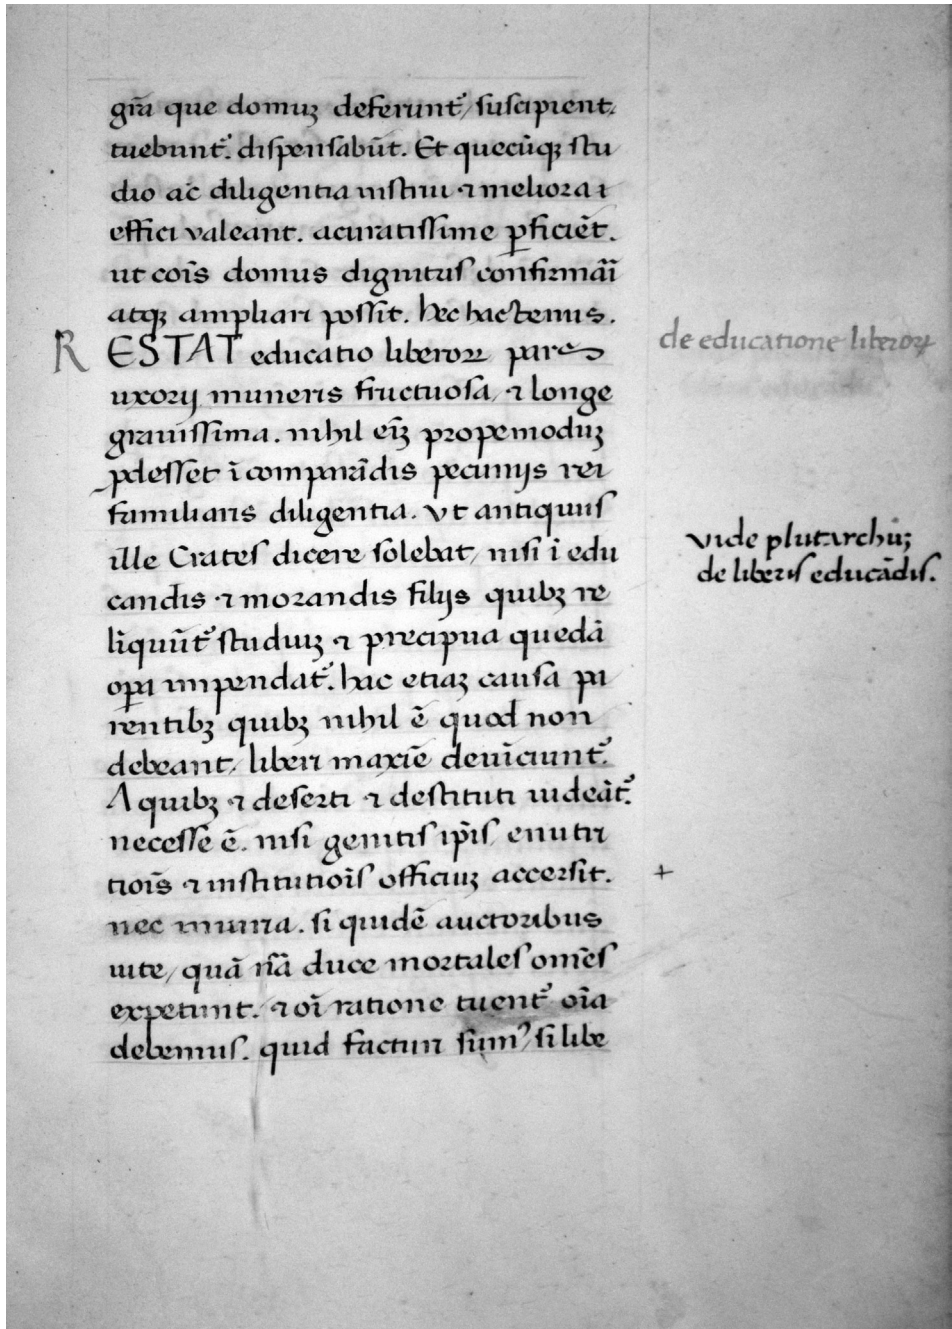 gr̃a que domuʒ deferunt᷑, suscipient.
tuebunt᷑. dispensabũt. Et quecũqꝫ stu
dio ac diligentia instrui ⁊ meliora ı
effici valeant. acuratissime ꝑficiẽt.
ut cõis domus dignitas confirmãi
atqꝫ ampliari possĩt. hec hactenus.
RESTAT educatio liberoꝝ pars
uxorij muneris fructuosa, ⁊ longe
grauissima. nihil eĩʒ propemoduʒ
ꝓdesset ĩ comparãdis pecunijs rei
familiaris diligentia. vt antiquus
ille Crates dicere solebat, nisi ĩ edu
candis ⁊ morandis filijs quibꝫ re
lĩquũt᷑ studiuʒ ⁊ precipua quedã
oꝑa impendat᷑. hac etiaʒ causa pa
rentibꝫ quibꝫ nihil ẽ quod non
debeant, liberi maxiẽ deuĩciunt᷑.
A quibꝫ ⁊ deserti ⁊ destituti uideãt᷑.
necesse ẽ. nisi genitis ip̃is, enutri
tiõis ⁊ institutiõis officiuʒ accersit.
nec iniuria. si quidẽ auctoribus
uite, quã nã duce mortales om̃es
expetunt. ⁊ oĩ ratione tuent᷑ oĩa
debemus. quid facturi sumꝰ, si libe
de educatione liberoꝝ
vide plutarchu;
de liberis educãdis.
+